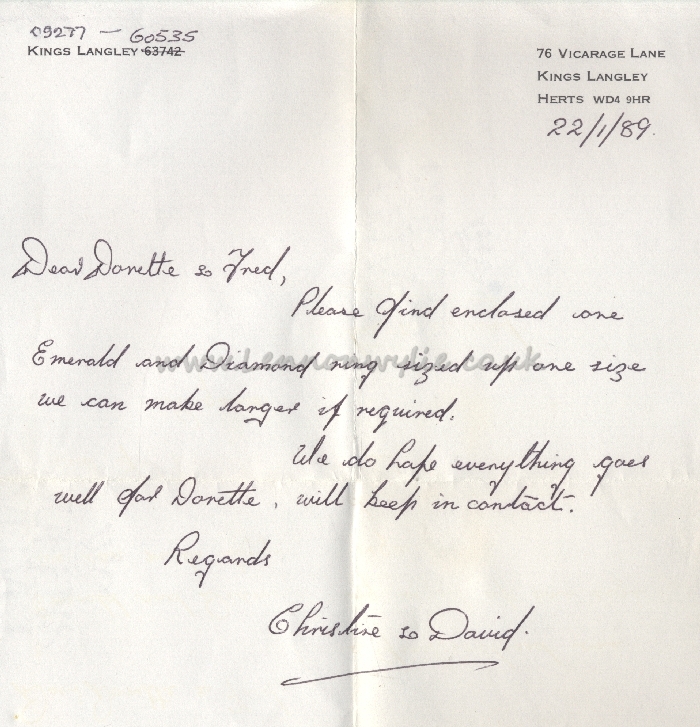 09277 - 60535
KINGS LANGLEY 63742
76 VICARAGE LANE
KINGS LANGLEY
HERTS WD4 9HR
22/1/89.
Dear Dorette & Fred,
Please find enclosed one
Emerald and Diamond ring sized up one size
www.lennonwylie.co.uk
we can make larger if required.
We do hope everything goes
well for Dorette, will keep in contact.
Regards
Christine & David.